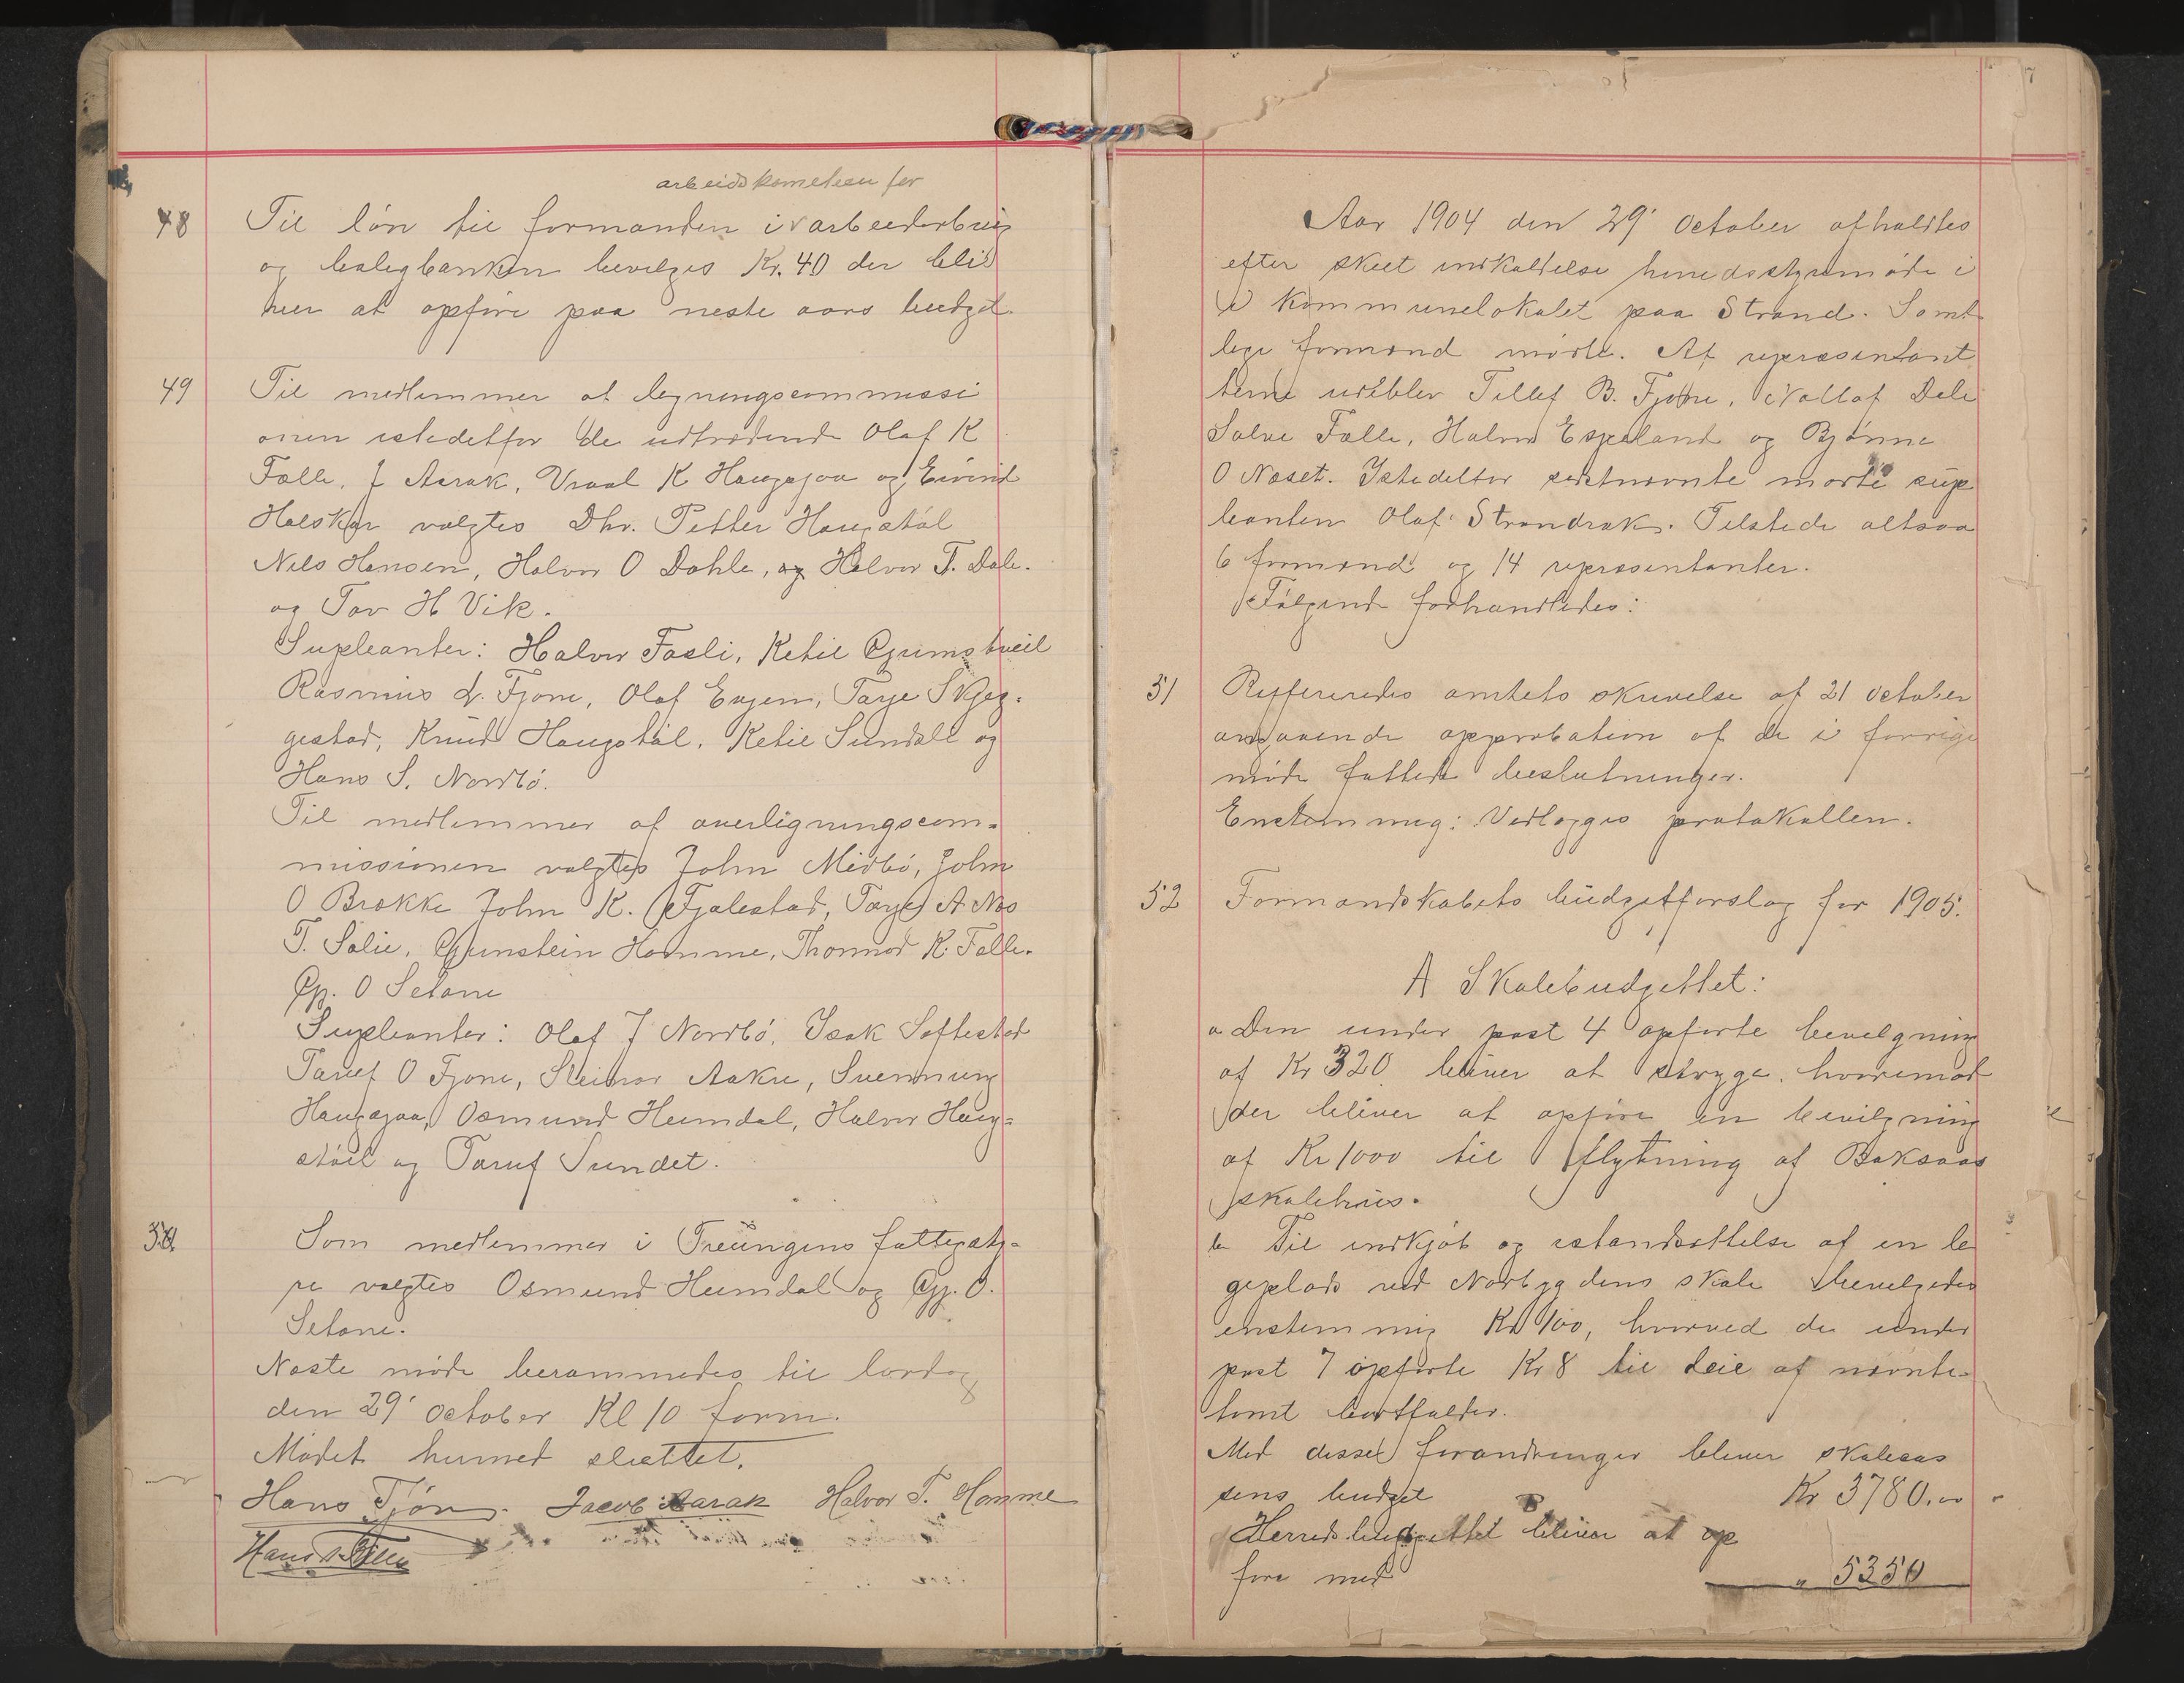 arbeidskometeen for
48 Til løn til formanden i arbeiderbrug
og boligbanken bevilges Kr. 40 der bli
ver at opføre paa neste aars budget.
49 Til medlemmer af legningscommissi
onen istedetfor de udtrædende Olaf K
Fælle, J Aarak, Vraal K Haugsjaa og Eivind
Halskar valgtes Dhr. Petter Haugstøl
Nils Hansen, Halvor O Dahle, og Halvor T. Dale.
og Tov H Vik.
Supleanter: Halvor Fosli, Ketil Grimstveil
Rasmus L. Fjone, Olaf Enjem, Tarje Skjeg-
gestad, Knud Haugstøl, Ketil Sundall og
Hans S. Nordbø.
Til medlemmer af overligningscom-
missionen valgtes John Midbø, John
O Brække John K. Fjalestad, Tarje A Næs
T. Solie, Gunstein Homme, Thormod K. Fælle.
Gj. O Setane
Supleanter: Olaf J Nordbø, Isak Søftestad
Taruf O Fjone, Steinar Aakre, Svennung
Haugsjaa, Osmund Heimdal, Halvor Haug-
støil og Taruf Sundet.
50 Som medlemmer i Treungens fattigsty-
re valgtes Osmund Heimdal og Gj. O.
Setane.
Næste møde berammedes til lørdag
den 29' October Kl 10 form.
Mødet hermed sluttet.
Hans Tjøn. Jacob Aarak Halvor T. Homme
Hans
Aar 1904 den 29' October afholdtes
efter skeet indkaldelse herredsstyremøde i
i Kommunelokalet paa Strand. Samt
lige formænd mødte. Af representant
terne udeblev Tellef B. Fjone, Nottof Dale
Salve Fælle, Halvor Espeland og Bjønne
O Næset. Istedetfor sidstnævnte mødte sup
leanten Olaf Strandrak. Tilstede altsaa
6 formænd og 14 representanter.
Følgende forhandledes:
51 Reffereredes amtets skrivelse af 21 October
angaaende approbation af de i forrige
møde fattede beslutninger.
Enstemmig: Vedlægges protokollen.
52 Formandskabets budgetforslag for 1905.
A Skolebudgettet:
a Den under post 4 opførte bevilgning
af Kr 320 bliver at stryge, hvorimod
der bliver at opføre en bevilgning
af Kr 1000 til flytning af Baksaas
skolehus.
b Til indkjøb og istandsættelse af en le
geplads ved Nordbygdens skole bevilgedes
enstemmig Kr 100, hvorved de under
post 7 opførte Kr 8 til leie af nævnte
tomt bortfalder.
Med disse forandringer bliver skolekas
sens budget Kr 3780.00
B Herredsbudgettet bliver at op
føre med " 5350